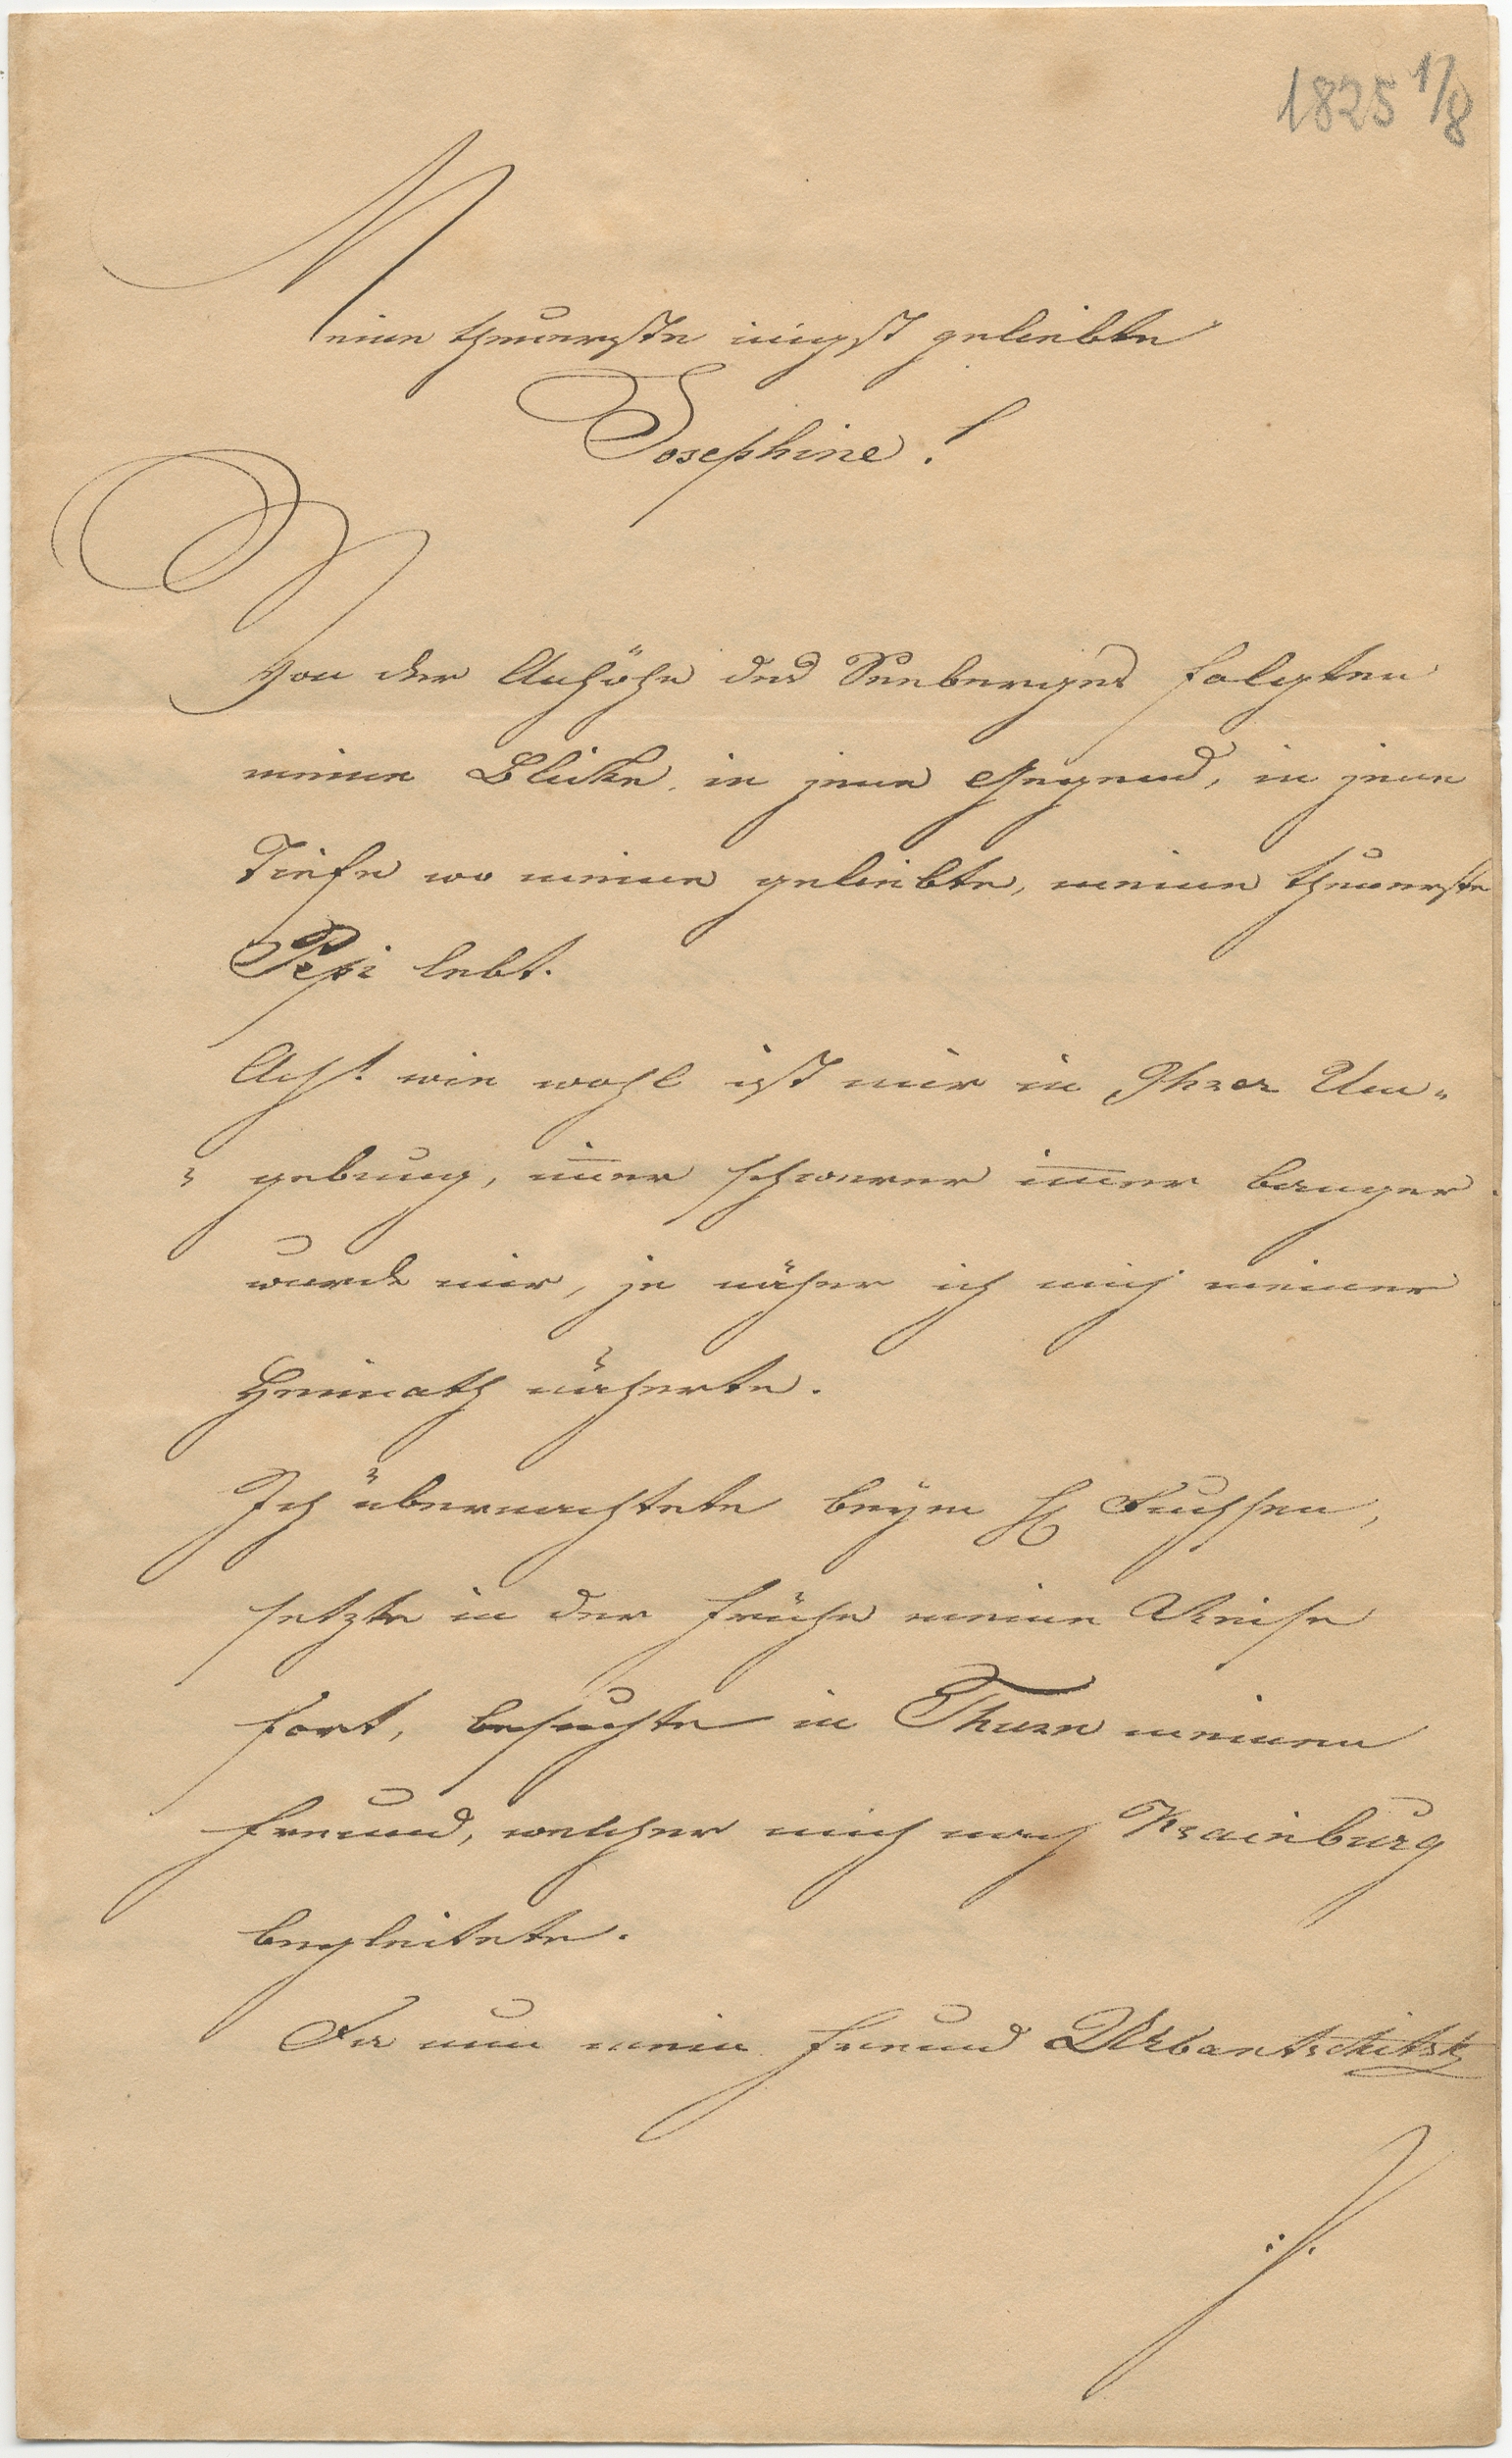 1825 1/8
Meine theuerste innigst geliebte
Josephine!
Von der Anhöhe des Seeberges folgten
meine Blicke in jene Gegend, in jene
Tiefe wo meine geliebte, meine theuerste
Pepi lebt.
Ach! wie wohl ist mir in Ihrer Um„
„gebung, im̅er schwerer im̅er banger
wurde mir, je näher ich mich meiner
Heimath näherte.
Ich übernachtete beym H Fuchsen,
setzte in der Frühe meine Reise
fort, besuchte in Thurn meinen
Freund, welcher mich nach Krainburg
begleitete.
Da nun mein Freund Urbantschitsch
./.